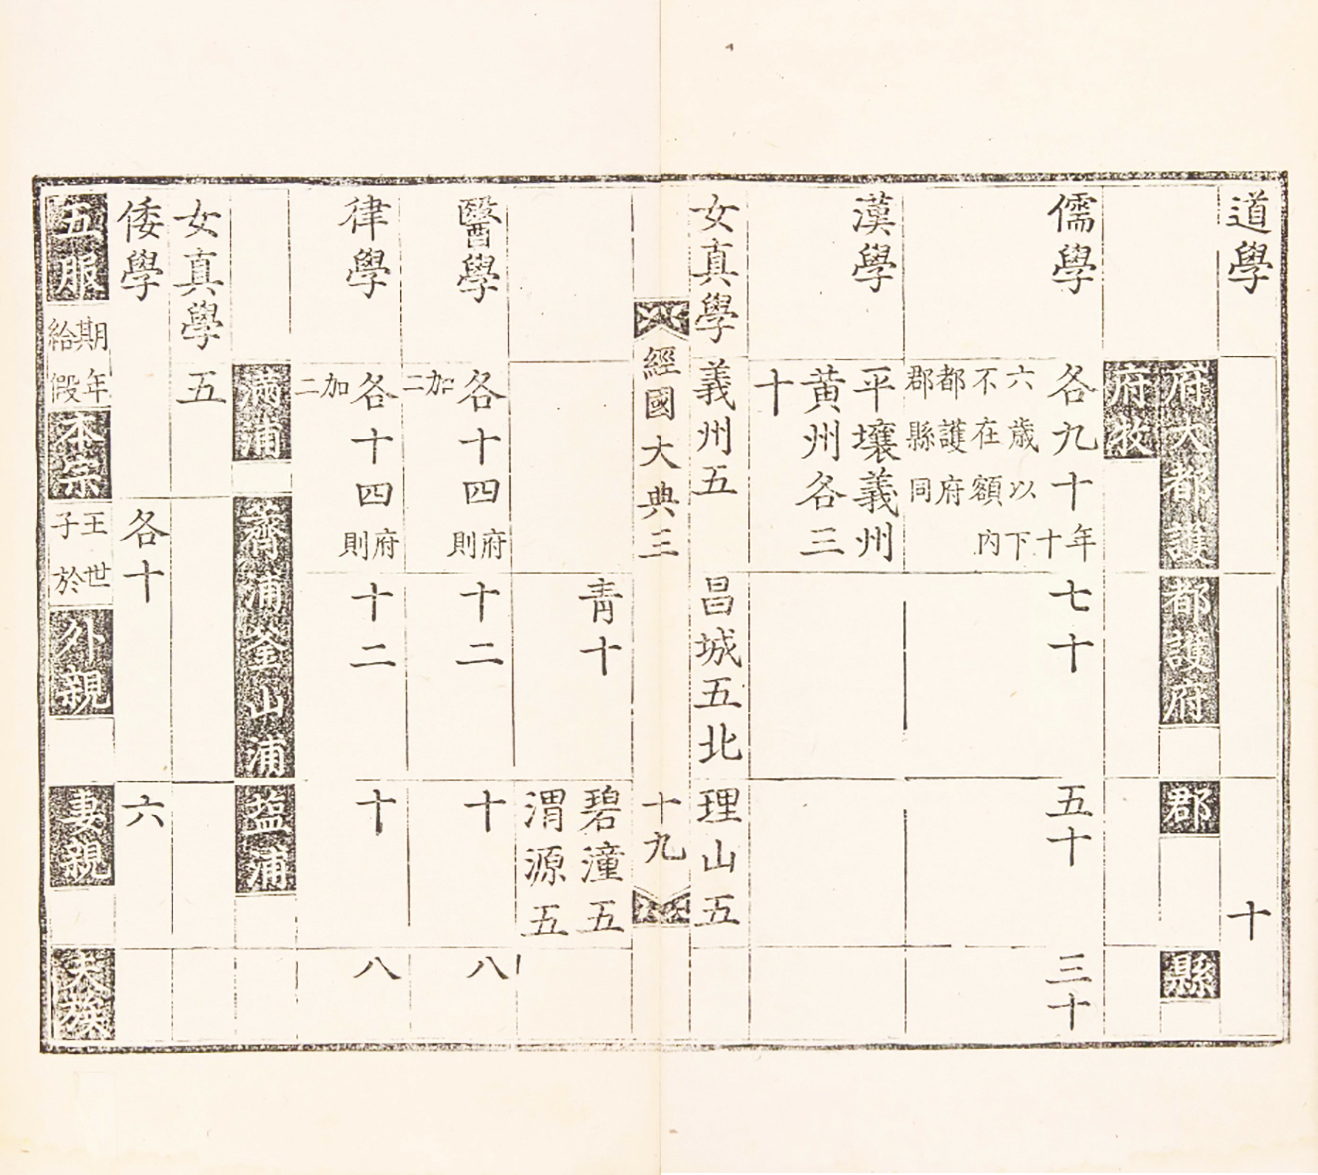 道學 十
府大都護 都護府 郡 縣
府牧
儒學 各九十年十 七十 五十 三十
六歲以下
不在額內
都護府
郡縣同
漢學 平壤義州
黃州各三
十
女真學 義州五 昌城五北 理山五
經國大典三 十九
青十 碧潼五
渭源五
醫學 各十四府則加二 十二 十 八
律學 各十四府則加二 十二 十 八
滿浦 薺浦釜山浦 盐浦
女真學 五
倭學 各十 六
五服 期年給假 本宗 王世子於 外親 妻親 夫族